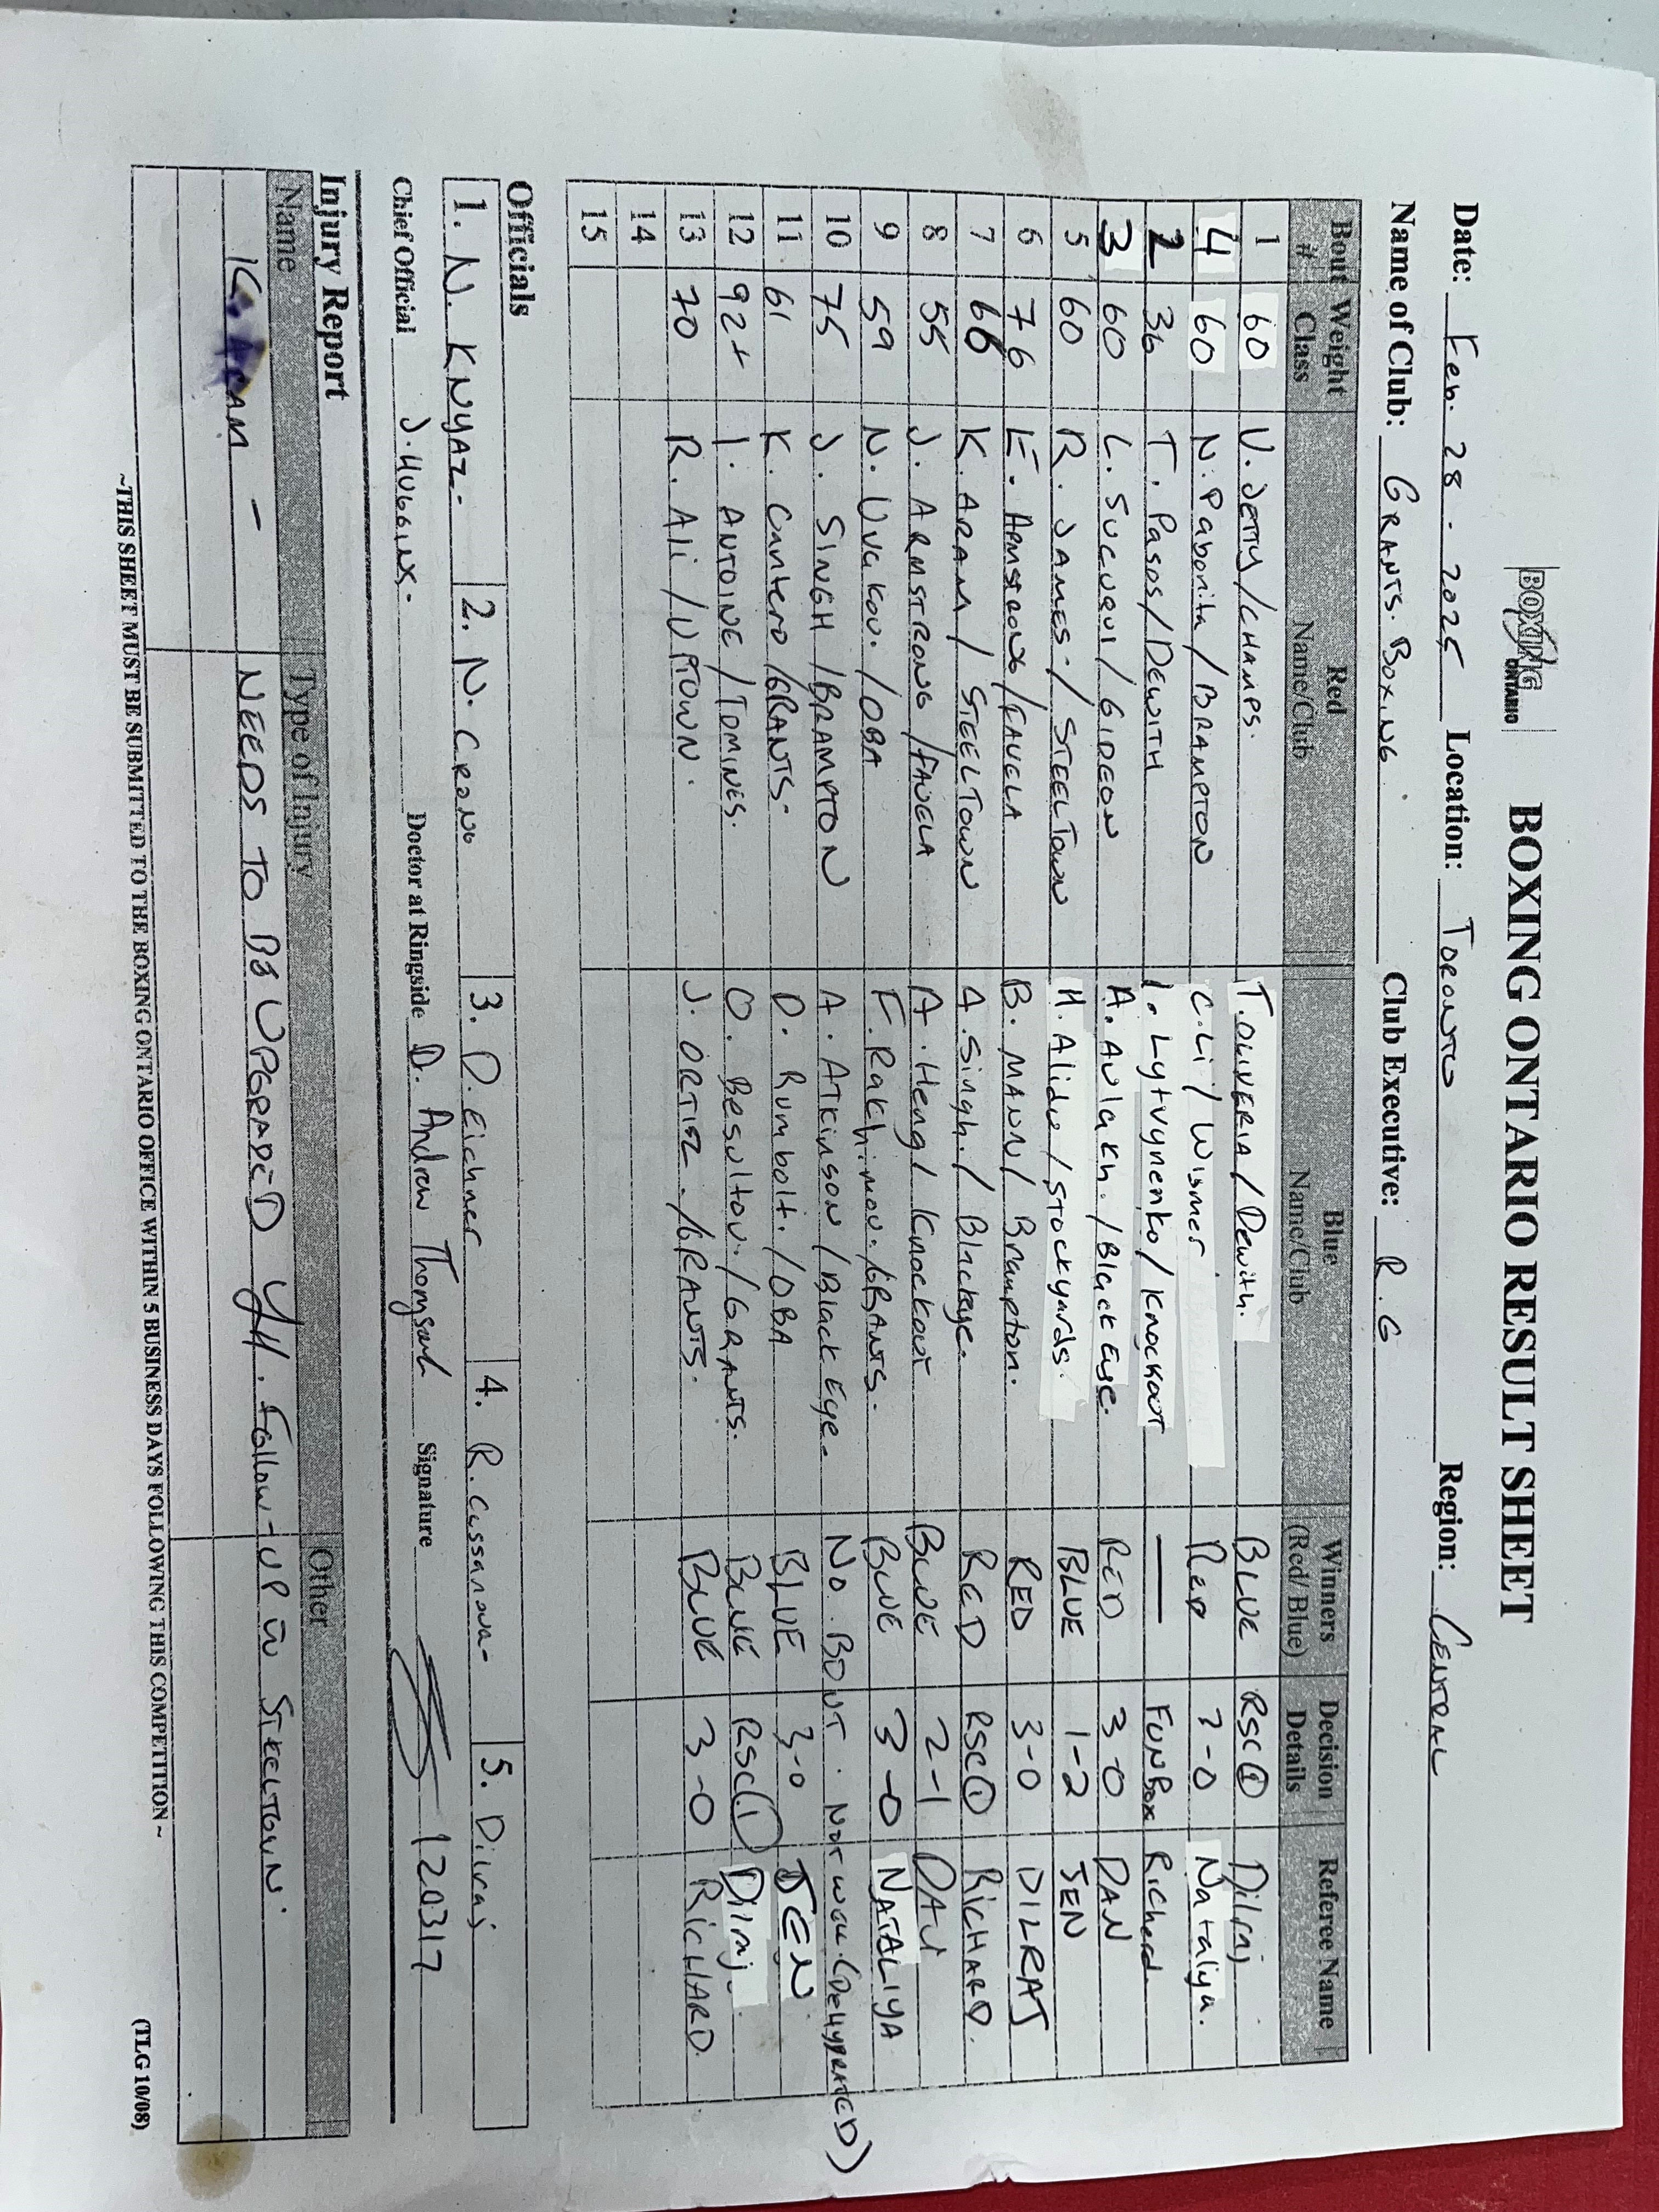 BOXING ONTARIO
BOXING ONTARIO RESULT SHEET
Date: Feb. 28. 2025 Location: TORONTO Region: CENTRAL
Name of Club: GRANTS. BOXING Club Executive: R. G
Bout # Weight Class Red Name/Club Blue Name/Club Winners (Red/Blue) Decision Details Referee Name
1 60 V. JETTY/CHAMPS. T. OLIVERIA/Dewith. BLUE RSC① Dilraj
4 60 N. Paborita/BRAMPTON C. Li/Wismer RED ?-0 Nataliya.
2 36 T. Pasos/DEWITH I. Lytvynenko/Knockout — FUNBOX Richard
3 60 L. SUCUQUI/GIDEON A. Aulakh./Black Eye. RED 3-0 DAN
5 60 R. JAMES-/STEELTOWN H. Alide/Stockyards. BLUE 1-2 JEN
6 76 E. ARMSTRONG/FAVELA B. MANN/Brampton. RED 3-0 DILRAJ
7 66 K. ARAM/STEELTOWN A. Singh./Blackeye. RED RSC① RICHARD.
8 55 J. ARMSTRONG/FAVELA A. Heng/Knockout BLUE 2-1 DAN
9 59 N. Uvakov./OBA F. Rakhimov./GRANTS. BLUE 3-0 NATALIYA
10 75 J. SINGH/BRAMPTON A. ATKINSON/Black Eye. NO BOUT. NOT WELL (DEHYDRATED)
11 61 K. Cantero/GRANTS. D. Rumbolt./OBA BLUE 3-0 JEN
12 92+ I. ANTOINE/TOMINES. O. Besultov./GRANTS. BLUE RSC(1) Dilraj.
13 70 R. Ali/UPTOWN. J. ORTIZ./GRANTS. BLUE 3-0 RICHARD
14
15
Officials
1. N. KNYAZ. 2. N. CRONE 3. D. Eichner 4. R. Cassanova 5. Dilraj
Chief Official J. HUGGINS. Doctor at Ringside D. Andrew Thompson Signature 120317
Injury Report
Name Type of Injury Other
K. ARAM - NEEDS TO BE UPGRADED Follow-UP in STEELTOWN.
~THIS SHEET MUST BE SUBMITTED TO THE BOXING ONTARIO OFFICE WITHIN 5 BUSINESS DAYS FOLLOWING THIS COMPETITION ~
(TLG 10/08)